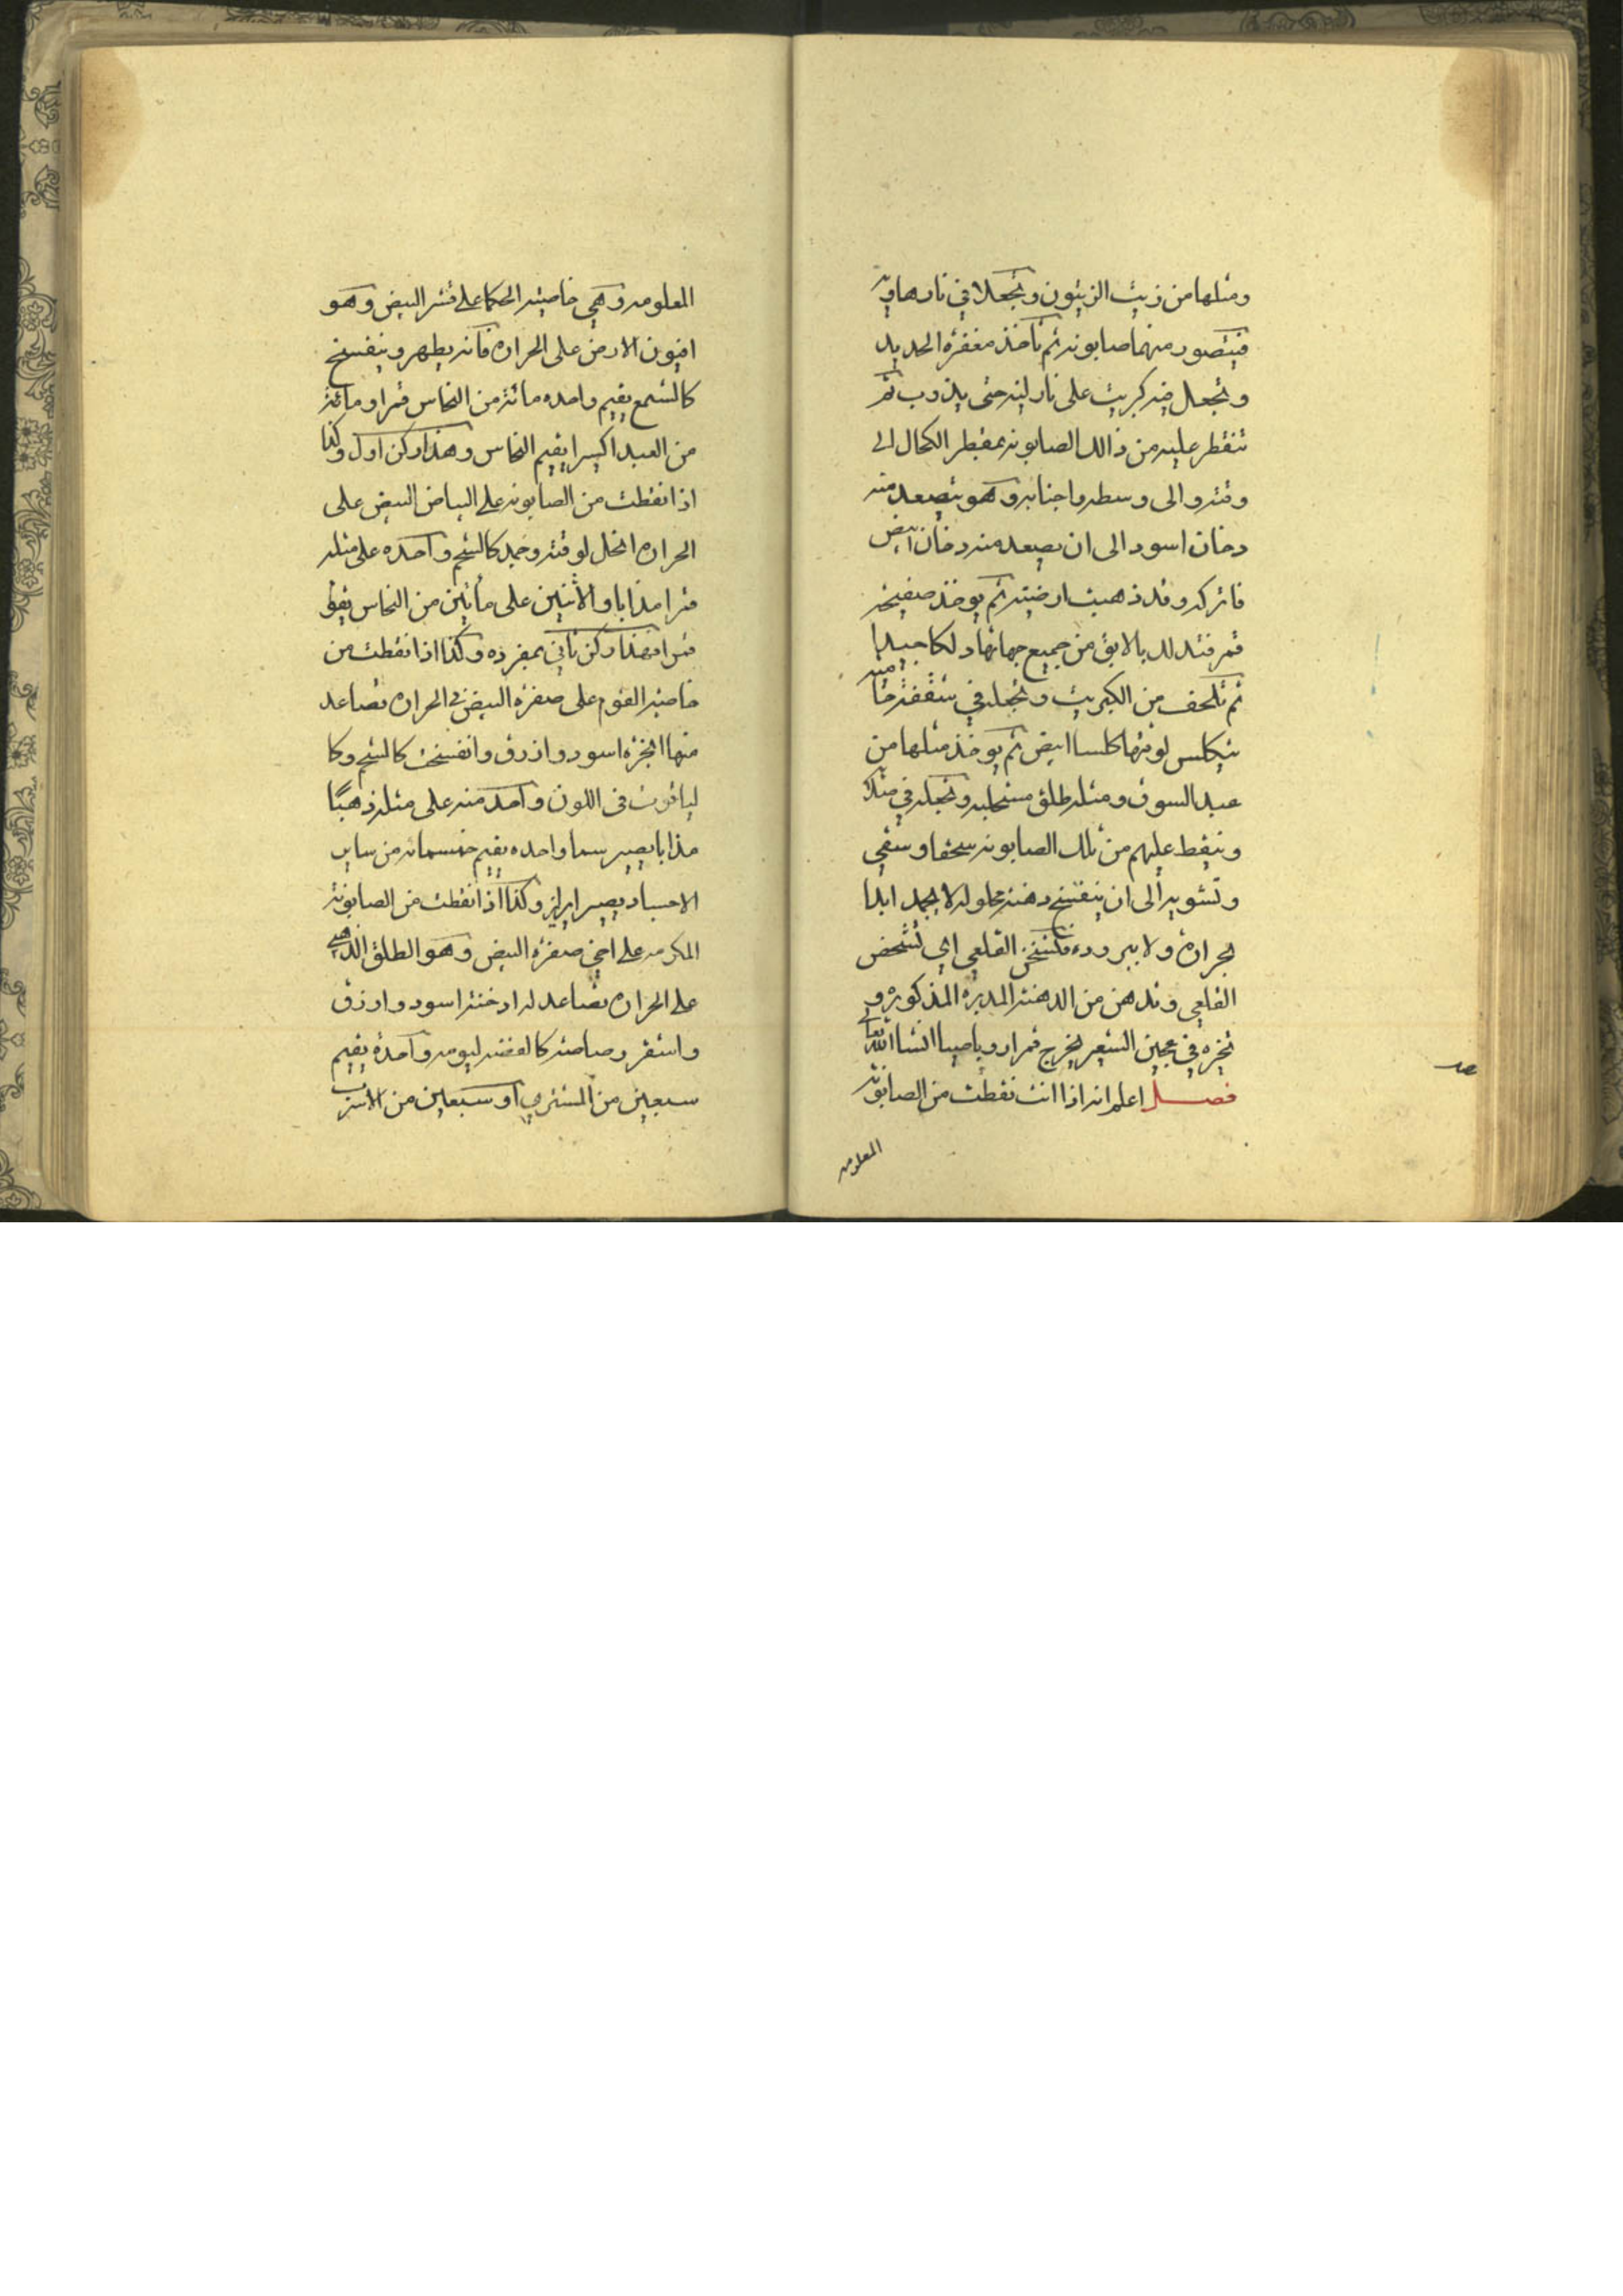 ومثلها من زيت الزيتون وتجعلا في نار هاديه
فيتصور منهما صابونه ثم تأخذ مغفرة الحديد
وتجعل فيه كبريت على نار لينه حتى يذوب ثم
تنقطر عليه من ذالك الصابونه بمقطر الكحال الى
وقته والى وسطه واجنابه وهو يتصعد منه
دخان اسود الى ان يصعد منه دخان ابيض
فاتركه وقد ذهبت ارضيته ثم يوخذ صفيحة
قمر فتدلك بالابق من جميع جهاتها دلكا جيدا
ثم تلحف من الكبريت وتجعله في شقفة
يتكلس لوقتها كلسا ابيض ثم يوخذ مثلها من
عبد السوق ومثله طلق مستحلب وتجعله في
وتنقط عليهم من تلك الصابونه سحقا وسقي
وتشويه الى ان ينفسخ دهنه محلوله لا يجمد ابدا
لحراره ولا ببروده القلعي اي تشحض
القلعي وتدهن من الدهنة المدبره المذكوره و
تخبزه في عجين الشعير يخرج قمرا روباصيا انشا الله تعالى
فصل اعلم انه اذا انت نقطت من الصابونه
المعلومه
المعلومه وهي خاصيه الحكما على قشر البيض وهو
افيون الارض على الحراره فانه يطهر وينفسخ
كالشمع يقيم واحده مائة من النحاس قمرا ومائة
من العبد اكسيرا يقيم النحاس وهذا ركن اول وكذا
اذا نقطت من الصابونه على البياض البيض على
الحراره انحل لوقته وجمد كالشحم واحده على مثله
قمرا مذابا والاثنين على مأتين من النحاس
قمرا فهذا ركن ثاني بمفرده وكذا اذا نقطت من
خاصية القوم على صفرة البيض في الحراره تصاعد
منها ابخره اسود وازرق وانفسخت كالشحم وكا
لياقوت في اللون واحد منه على مثله ذهبًا
مذابا يصير سما واحده يقيم خمسمائه من ساير
الاجساد يصير ابريز وكذا اذا نقطت من الصابونة
المكرمه على اخي صفرة البيض وهو الطلق الذهبي
على الحراره تصاعد له ادخنة اسود وازرق
واستقر رصاصة كالفضه ليومه واحدة يقيم
سبعين من المشتري او سبعين من الاسرب